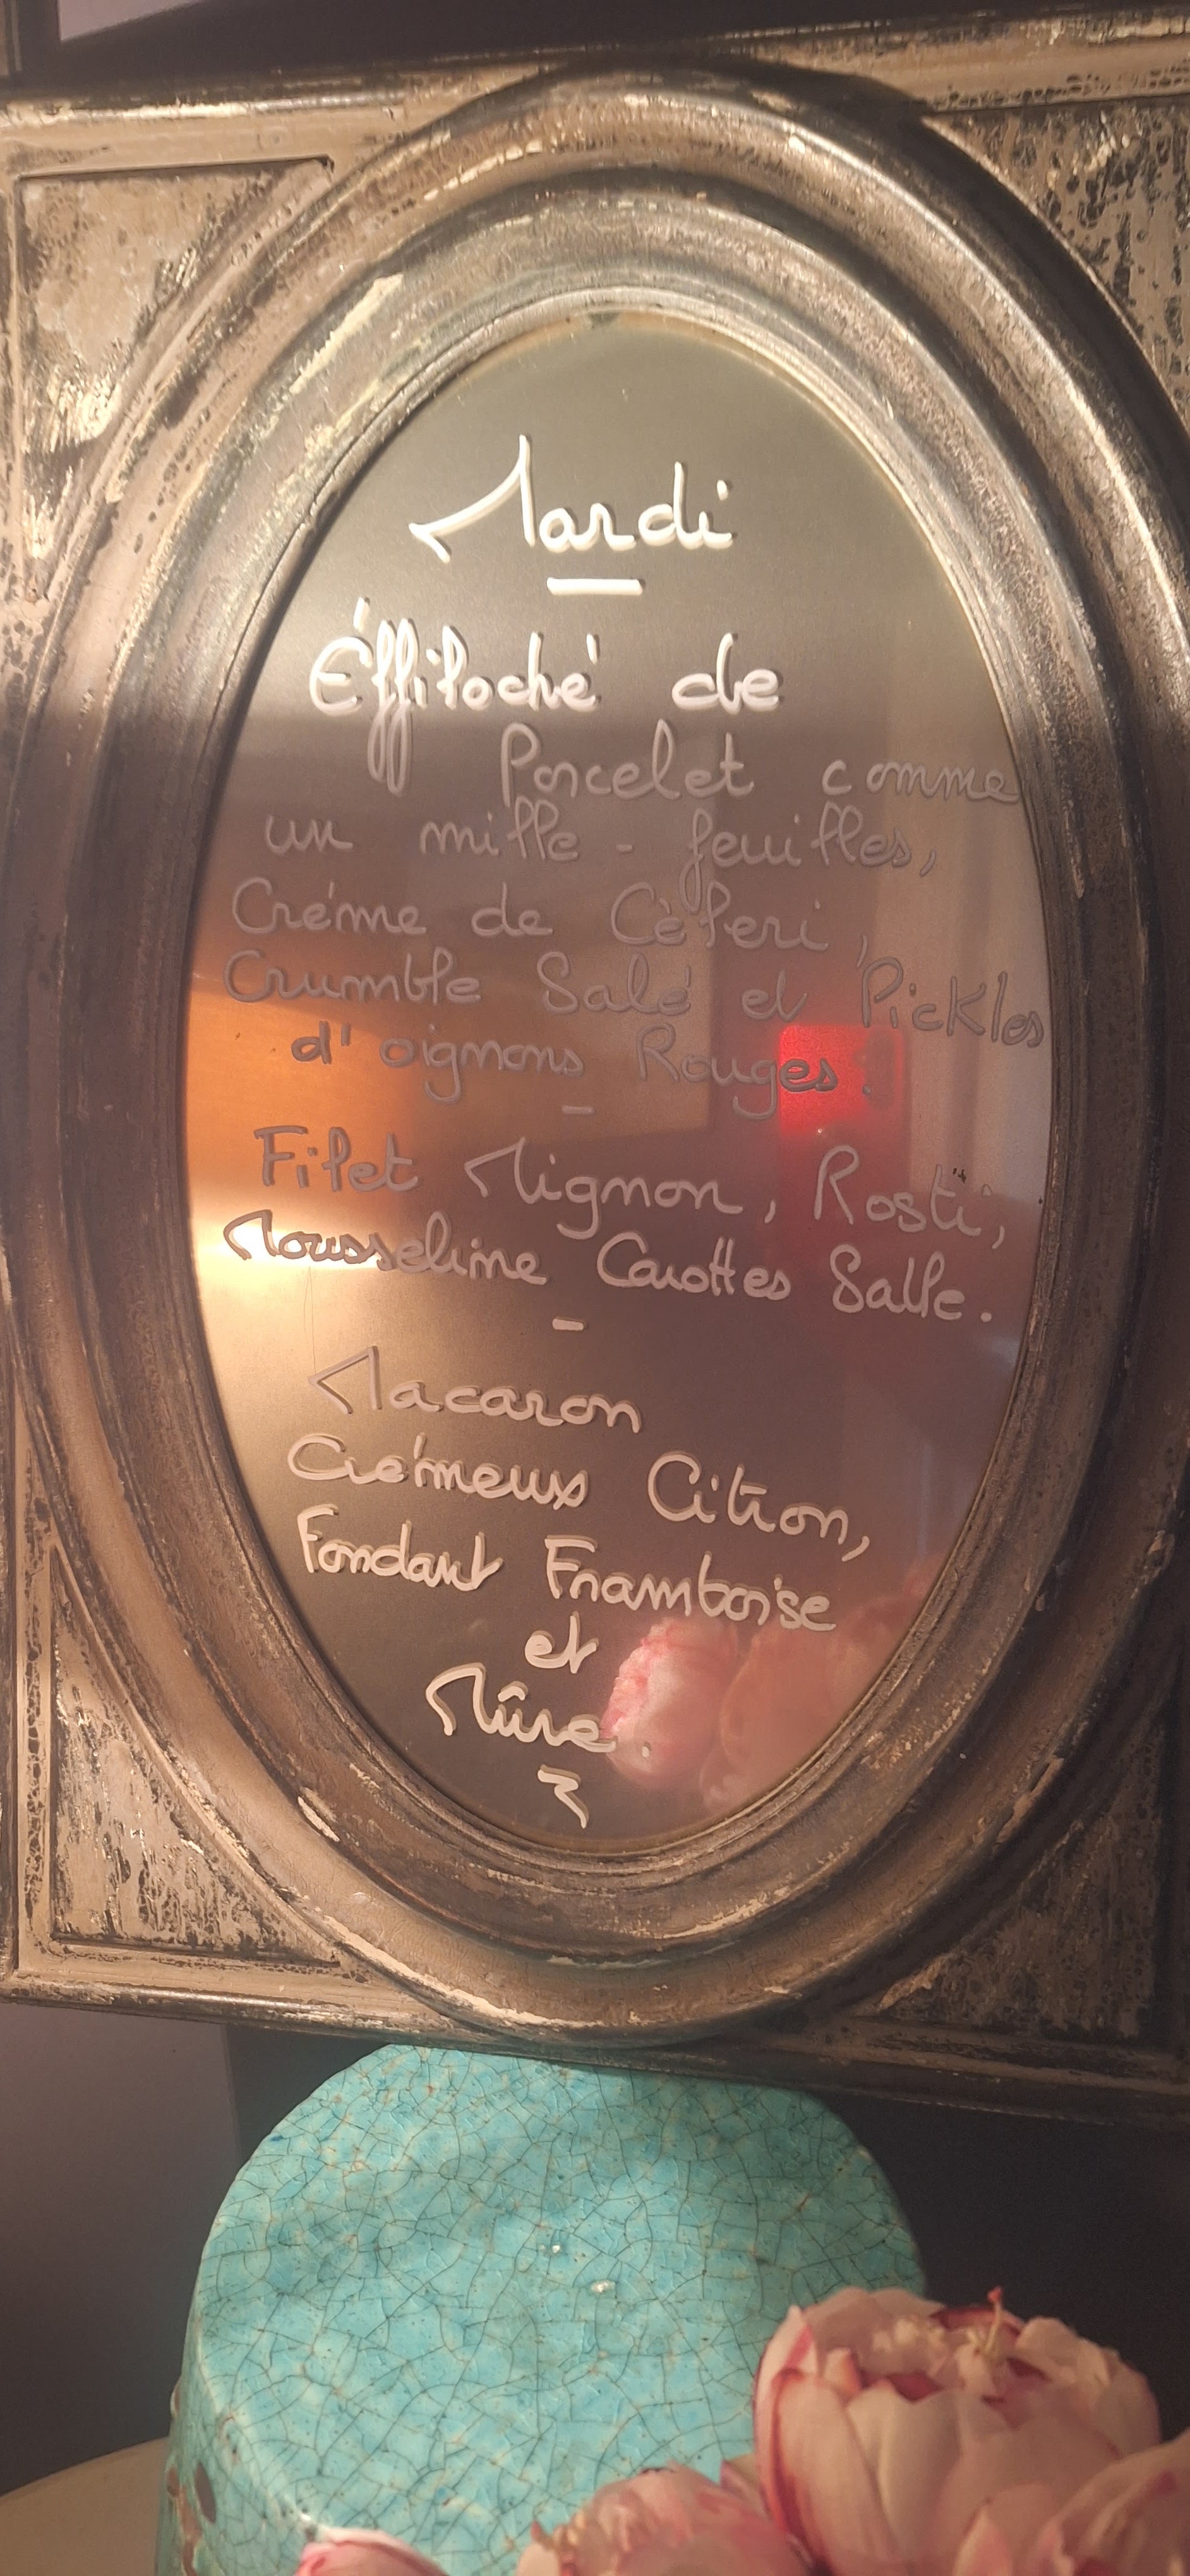 Mardi
Éffiloché de
Porcelet comme
un mille-feuilles,
Créme de Cèleri,
Crumble Salé et Pickles
d'oignons Rouges.
Filet Mignon, Rosti,
Mousseline Carottes Salle.
Macaron
Crémeux Citron,
Fondant Framboise
et
Mûre.